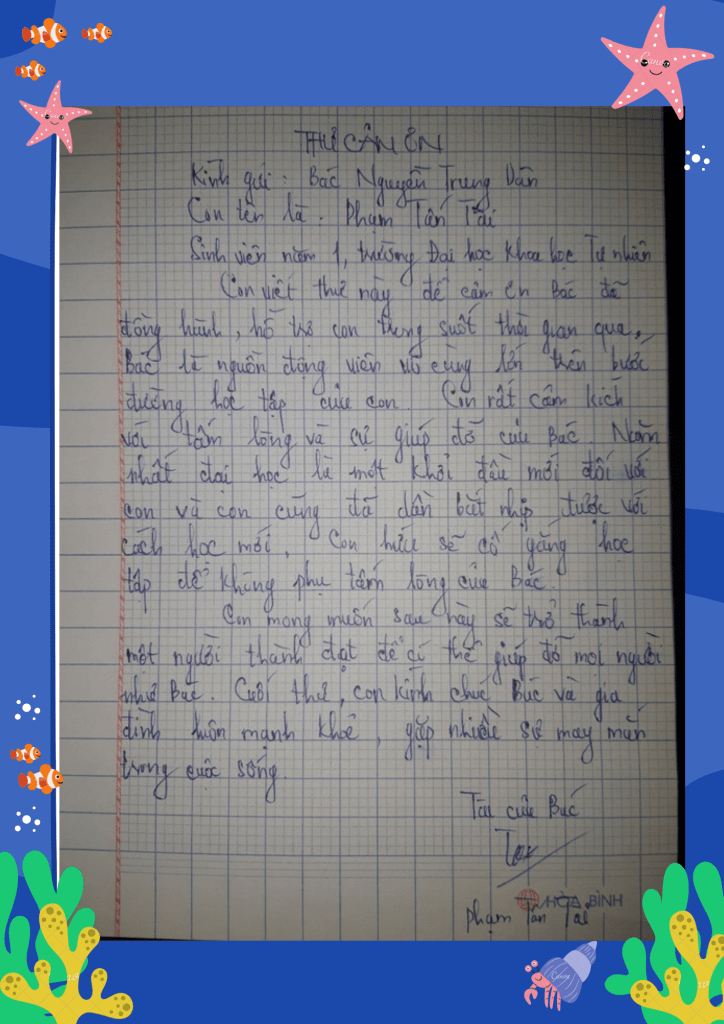 THƯ CẢM ƠN
Kính gửi : Bác Nguyễn Trung Dân
Con tên là : Phạm Tấn Tài
Sinh viên năm 1, trường Đại học Khoa học Tự nhiên
Con viết thư này để cảm ơn Bác đã
đồng hành, hỗ trợ con trong suốt thời gian qua,
Bác là nguồn động viên vô cùng lớn trên bước
đường học tập của con. Con rất cảm kích
với tấm lòng và sự giúp đỡ của Bác. Năm
nhất đại học là một khởi đầu mới đối với
con và con cũng đã dần bắt nhịp được với
cách học mới. Con hứa sẽ cố gắng học
tập để không phụ tấm lòng của Bác.
Con mong muốn sau này sẽ trở thành
một người thành đạt để có thể giúp đỡ mọi người
như Bác. Cuối thư, con kính chúc Bác và gia
đình luôn mạnh khỏe, gặp nhiều sự may mắn
trong cuộc sống.
Tài của Bác
Tài
HÒA BÌNH
Phạm Tấn Tài